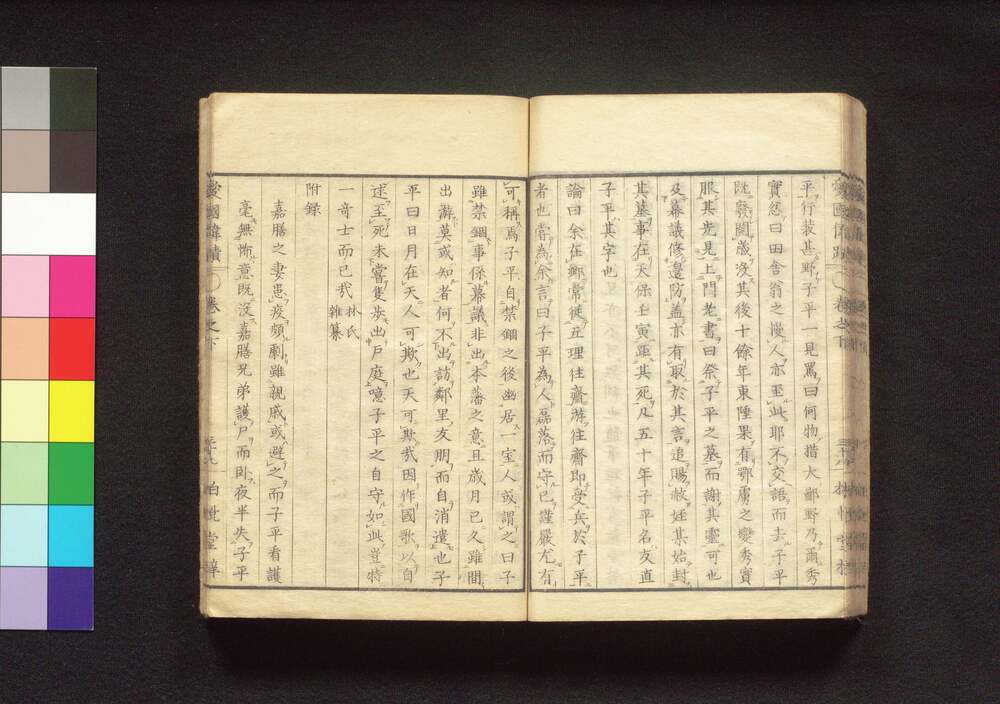 平行装甚野子平一見罵曰何物措大鄙野乃爾秀
實怒曰田舎翁之慢人亦至此耶不交語而去子平
既廢闔歳没其後十餘年東陲果有鄂虜之變秀實
服其先見上閣老書曰祭子平之墓而謝其靈可也
及幕議修邊防蓋亦有取於其言追賜赦姪某始封
其墓事在天保壬寅距其死凡五十年子平名友直
子平其字也
論曰余在郷常從立理往齋游往齋即受兵於子平
者也嘗為余言曰子平為人磊落而守己謹嚴尤有
可稱焉子平自禁錮之後幽居一室人或謂之曰子
雖禁錮事係幕議非出本藩之意且歳月已久雖間
出游莫或知者何不出訪鄰里友朋而自消遣也子
平曰日月在天人可欺也天可欺哉因作國歌以自
述至死未嘗隻歩出戸庭噫子平之自守如此豈特
一奇士而已哉
林氏
雜纂
附録
嘉膳之妻患疫頗劇雖親戚或避之而子平看護
毫無怖意既没嘉膳兄弟護尸而臥夜半失子平
愛國偉蹟
卷之下
廿九
怡悦堂梓